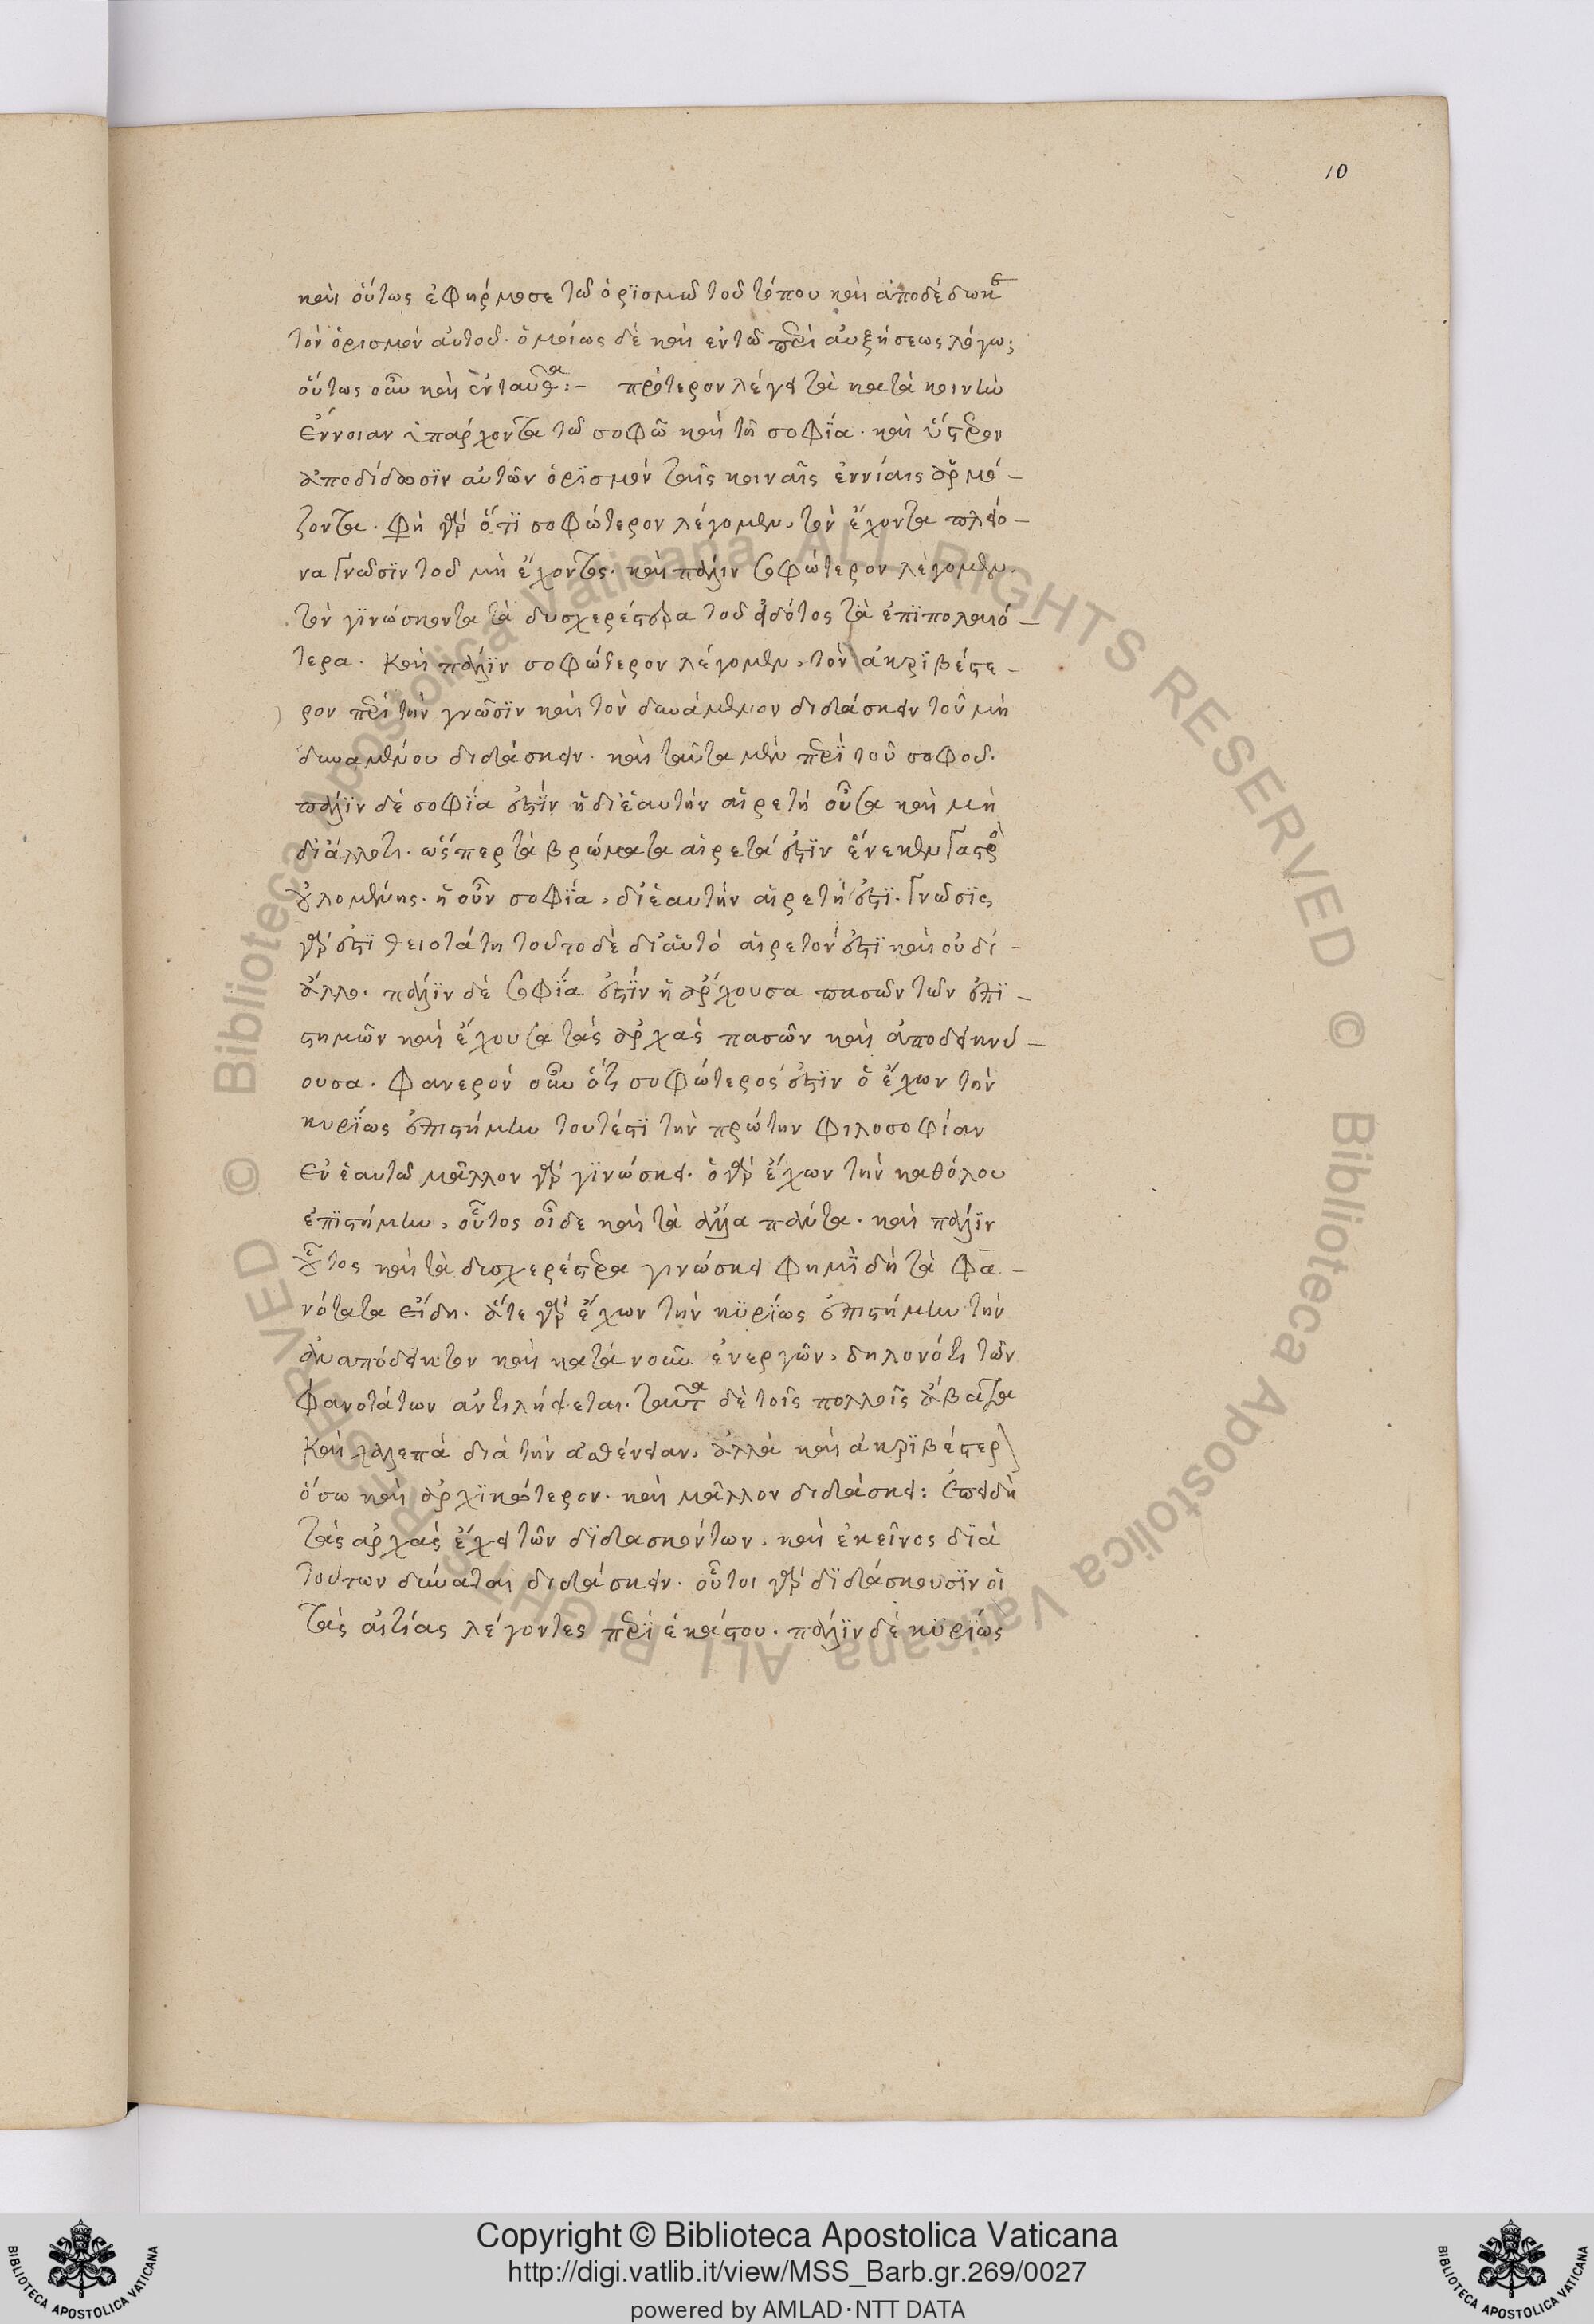 10
καὶ οὕτως ἐφήρμοσε τῶ ὁρϊσμῶ τοῦ τόπου καὶ ἀποδέδωκε
τὸν ὁρισμὸν αὐτοῦ. ὁμοίως δὲ καὶ ἐν τῶ περὶ αὐξήσεως λόγω;
οὕτως οὖν καὶ ἐνταῦθα:– πρότερον λέγει τὰ κατὰ κοινὴν
ἔννοιαν ὑπάρχοντα τῶ σοφῶ καὶ τῆ σοφΐα. καὶ ὕστερον
ἀποδίδωσϊν αὐτῶν ὁρϊσμὸν ταῖς κοιναῖς ἐννίαις ἁρμό–
ζοντα. φὴ γὰρ ὅτϊ σοφώτερον λέγομεν, τὸν ἔχοντα πλείο–
να γνῶσϊν τοῦ μὴ ἔχοντος. καὶ πάλιν σοφώτερον λέγομεν.
τὸν γϊνώσκοντα τὰ δυσχερέστερα τοῦ εἰδότος τὰ ἐπϊπολαιό–
τερα. καὶ πάλϊν σοφώτερον λέγομεν, τὸν ἀκρϊβέστε–
ρον περὶ τὴν γνῶσϊν καὶ τὸν δυνάμενον διδάσκειν τοῦ μὴ
δυναμένου διδάσκειν. καὶ ταῦτα μὲν περῒ τοῦ σοφοῦ.
πάλϊν δὲ σοφΐα ἐστῒν ἡ δι' ἑαυτὴν αἱρετὴ οὖσα καὶ μὴ
δι' ἄλλότι. ὥσπερ τὰ βρώματα αἱρετά ἐστϊν ἕνεκεν γαστρὸς
ὀλομένης. ἡ οὖν σοφΐα, δι' ἑαυτὴν αἱρετή ἐστϊ. γνῶσϊς
γάρ ἐστϊ θειοτάτη τοῦτο δὲ δι' αὑτὸ αἱρετόν ἐστϊ καὶ οὐ δι'–
ἄλλο. πάλϊν δὲ σοφΐα ἐστῒν ἡ ἄρχουσα πασῶν τῶν ἐπϊ–
στημῶν καὶ ἔχουσα τὰς ἀρχὰς πασῶν καὶ ἀποδεικνύ–
ουσα. φανερὸν οὖν ὅτι σοφώτερος ἐστϊν ὁ ἔχων τὴν
κυρΐως ἐπιστήμην τουτέστϊ τὴν πρώτην φιλοσοφίαν
ἐν ἑαυτῶ μᾶλλον γὰρ γϊνώσκει. ὁ γὰρ ἔχων τὴν καθόλου
ἐπϊστήμην, οὗτος οἶδε καὶ τὰ ἄλλα πάντα. καὶ πάλϊν
οὗτος καὶ τὰ δισχερέστερα γινώσκει φημῒ δὴ τὰ φα–
νότατα εἴδη. ἅτε γὰρ ἔχων τὴν κϋρΐως ἐπιστήμην τὴν
ἀναπόδεικτον καὶ κατὰ νοῦν ἐνεργῶν, δηλονότι τῶν
φανοτάτων ἀντιλήψεται. ταῦτα δὲ τοῖς πολλοῖς ἄβατα
καὶ χαλεπὰ διὰ τὴν ἀσθένειαν, ἀλλὰ καὶ ἀκρϊβέστερ
ὅσω καὶ ἀρχϊκώτερον. καὶ μᾶλλον διδάσκει: ἐπειδὴ
τὰς ἀρχὰς ἔχει τῶν δϊδασκόντων. καὶ ἐκεῖνος δϊὰ
τούτων δύναται διδάσκειν. οὗτοι γὰρ δϊδάσκουσϊν οἱ
τὰς αἰτίας λέγοντες περῒ ἑκάστου. πάλϊν δὲ κϋρΐως
Copyright © Biblioteca Apostolica Vaticana
http://digi.vatlib.it/view/MSS_Barb.gr.269/0027
powered by AMLAD·NTT DATA